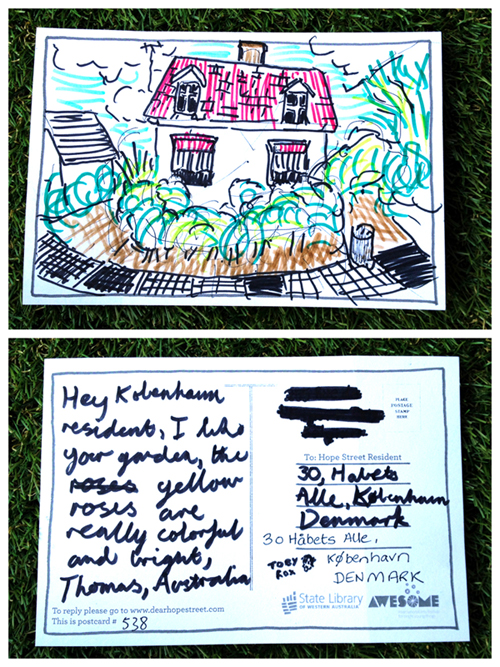 Hey Kobenhaum
resident, I like
your garden, the
roses yellow
roses are
really colorful
and bright,
Thomas, Australia
To reply please go to www.dearhopestreet.com
This is postcard # 538
PLACE
POSTAGE
STAMP
HERE
To: Hope Street Resident
30, Habets
Alle, Københaum
Denmark
30 Håbets Alle,
TOBY
ROX
København
DENMARK
State Library
OF WESTERN AUSTRALIA
AWESOME